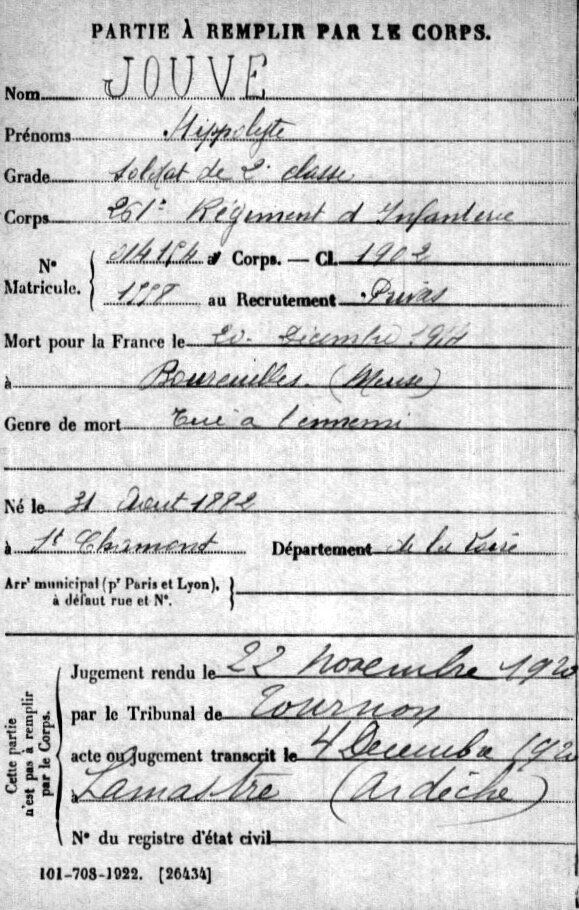 PARTIE À REMPLIR PAR LE CORPS.
Nom JOUVE
Prénoms Hippolyte
Grade Soldat de 2e classe
Corps 261e Régiment d'Infanterie
N° Matricule. { au Corps. — Cl. 1902
au Recrutement Privas
Mort pour la France le 20 Décembre 1914
à Boureuilles (Meuse)
Genre de mort Tué à l'ennemi
Né le 31 Aout 1882
à St Chamont Département de la Loire
Arrt municipal (pr Paris et Lyon),
à défaut rue et N°.
Cette partie n'est pas à remplir par le Corps.
Jugement rendu le 22 novembre 1920
par le Tribunal de Tournon
acte ou jugement transcrit le 4 Decembre 1920
Lamastre (Ardèche)
N° du registre d'état civil
101-708-1922. [26434]